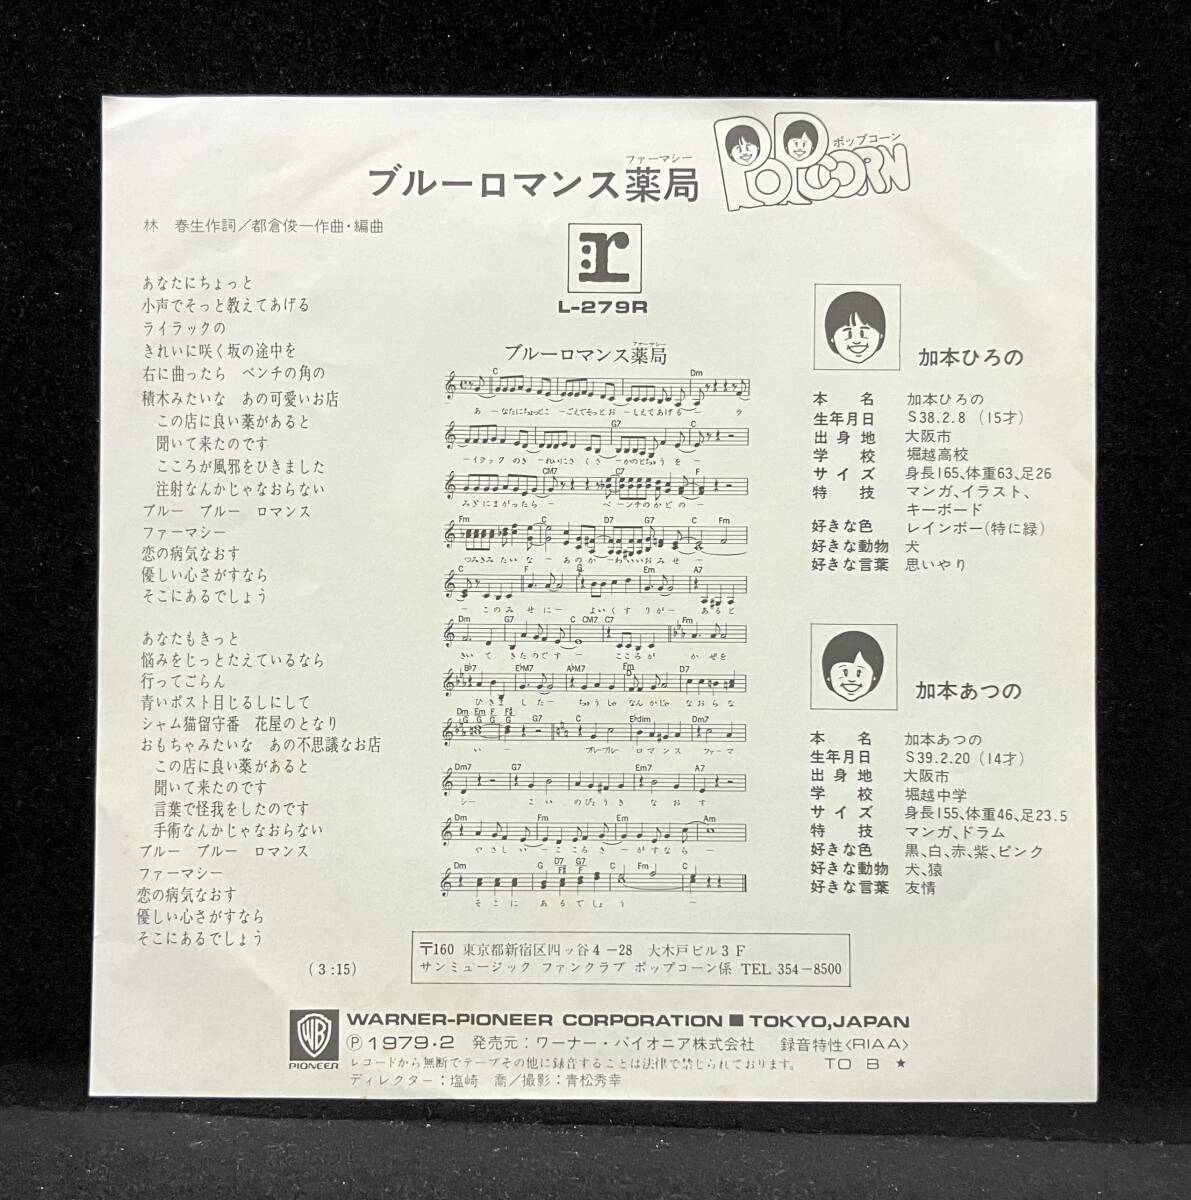 ブルーロマンス薬局
ファーマシー
POPCORN
ポップコーン
林 春生作詞／都倉俊一作曲・編曲
r
L-279R
あなたにちょっと
小声でそっと教えてあげる
ライラックの
きれいに咲く坂の途中を
右に曲ったら ベンチの角の
積木みたいな あの可愛いお店
この店に良い薬があると
聞いて来たのです
こころが風邪をひきました
注射なんかじゃなおらない
ブルー ブルー ロマンス
ファーマシー
恋の病気なおす
優しい心さがすなら
そこにあるでしょう
あなたもきっと
悩みをじっとたえているなら
行ってごらん
青いポスト目じるしにして
シャム猫留守番 花屋のとなり
おもちゃみたいな あの不思議なお店
この店に良い薬があると
聞いて来たのです
言葉で怪我をしたのです
手術なんかじゃなおらない
ブルー ブルー ロマンス
ファーマシー
恋の病気なおす
優しい心さがすなら
そこにあるでしょう
(3:15)
ブルーロマンス薬局
ファーマシー
C Dm
あーなたにちょっとこーごえでそっとおーしえてあげるー ラ
G7 C
ーイラック のきーれいにさ くさーかのとちゅう をー
CM7 C7 F
みぎにまがったらー べーンチのかどのー
Fm C D7 G7 C Fm
つみきみたいなーあのかーわいいおみせー
C F G Em A7
ーこのみせにー よいくすりがー あると
Dm G7 C CM7 C7 Fm
きいてきたのですー こころが かぜを
B♭7 E♭M7 A♭M7 Fm D7
ひきましたー ちゅうしゃなんかじゃ なおらな
Dm Em F F♯
G G G G G7 C E♭dim Dm7
いー ブルーブルー ロマンス ファーマ
Dm7 G7 C Em7 A7
シー こい のびょうき なおす
Dm G7 Em Am
やさしいーこころさーがすならー
Dm G D7 G7 F♯ F C Fm C
そこに あるでしょうー
加本ひろの
本名 加本ひろの
生年月日 S38.2.8 (15才)
出身地 大阪市
学校 堀越高校
サイズ 身長165、体重63、足26
特技 マンガ、イラスト、
キーボード
好きな色 レインボー(特に緑)
好きな動物 犬
好きな言葉 思いやり
加本あつの
本名 加本あつの
生年月日 S39.2.20 (14才)
出身地 大阪市
学校 堀越中学
サイズ 身長155、体重46、足23.5
特技 マンガ、ドラム
好きな色 黒、白、赤、紫、ピンク
好きな動物 犬、猿
好きな言葉 友情
〒160 東京都新宿区四ッ谷4－28 大木戸ビル3F
サンミュージック ファンクラブ ポップコーン係 TEL 354－8500
WB
PIONEER
WARNER-PIONEER CORPORATION ■ TOKYO, JAPAN
Ⓟ1979・2 発売元：ワーナー・パイオニア株式会社 録音特性〈RIAA〉
レコードから無断でテープその他に録音することは法律で禁じられております。 TO B ★
ディレクター：塩崎 喬／撮影：青松秀幸